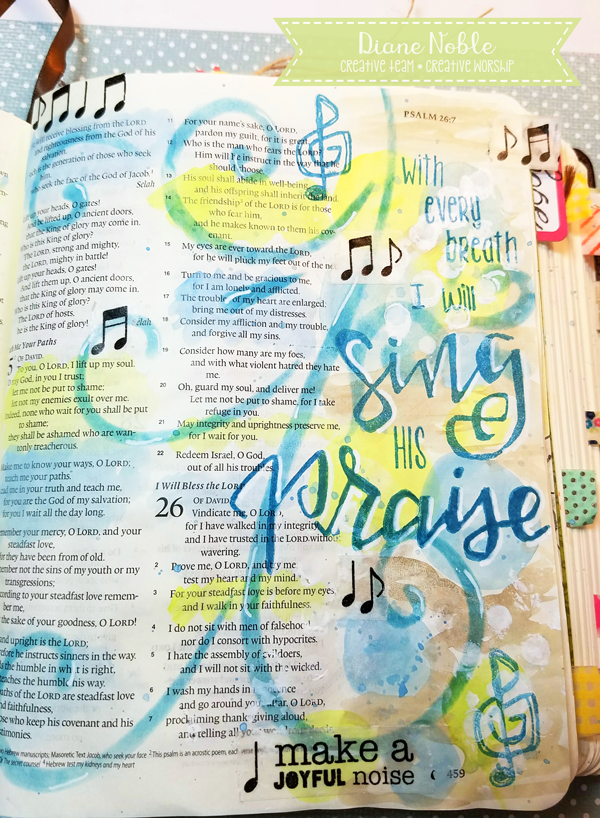 Diane Noble
CREATIVE TEAM • CREATIVE WORSHIP
will receive blessing from the LORD
and righteousness from the God of his
salvation.
is the generation of those who seek
him,
who seek the face of the God of Jacob.
Selah
up your heads, O gates!
And be lifted up, O ancient doors,
that the King of glory may come in.
who is this King of glory?
The LORD, strong and mighty,
the LORD, mighty in battle!
up your heads, O gates!
And lift them up, O ancient doors,
that the King of glory may come in.
who is this King of glory?
The LORD of hosts,
he is the King of glory!
Me Your Paths
OF DAVID.
To you, O LORD, I lift up my soul.
my God, in you I trust;
let me not be put to shame;
let not my enemies exult over me.
Indeed, none who wait for you shall be put
to shame;
they shall be ashamed who are wan-
tonly treacherous.
Make me to know your ways, O LORD;
teach me your paths.
Lead me in your truth and teach me,
for you are the God of my salvation;
for you I wait all the day long.
your mercy, O LORD, and your
steadfast love,
for they have been from of old.
not the sins of my youth or my
transgressions;
according to your steadfast love remem-
ber me,
the sake of your goodness, O LORD!
and upright is the LORD;
he instructs sinners in the way.
the humble in what is right,
teaches the humble his way.
paths of the LORD are steadfast love
faithfulness,
who keep his covenant and his
testimonies.
11 For your name's sake, O LORD,
pardon my guilt, for it is great.
12 Who is the man who fears the LORD?
Him will he instruct in the way that he
should choose.
13 His soul shall abide in well-being,
and his offspring shall inherit the land.
14 The friendship of the LORD is for those
who fear him,
and he makes known to them his cov-
enant.
15 My eyes are ever toward the LORD,
for he will pluck my feet out of the
16 Turn to me and be gracious to me,
for I am lonely and afflicted.
17 The troubles of my heart are enlarged;
bring me out of my distresses.
18 Consider my affliction and my trouble,
and forgive all my sins.
19 Consider how many are my foes,
and with what violent hatred they hate
me.
20 Oh, guard my soul, and deliver me!
Let me not be put to shame, for I take
refuge in you.
21 May integrity and uprightness preserve me,
for I wait for you.
22 Redeem Israel, O God,
out of all his troubles.
I Will Bless the LORD
26 OF DAVID.
Vindicate me, O LORD,
for I have walked in my integrity,
and I have trusted in the LORD without
wavering.
2 Prove me, O LORD, and try me;
test my heart and my mind.
3 For your steadfast love is before my eyes,
and I walk in your faithfulness.
4 I do not sit with men of falsehood,
nor do I consort with hypocrites.
5 I hate the assembly of evildoers,
and I will not sit with the wicked.
6 I wash my hands in innocence
and go around your altar, O LORD,
7 proclaiming thanksgiving aloud,
and telling all your
PSALM 26:7
with
every
breath
I will
Sing
HIS
praise
make a
JOYFUL noise
459
Hebrew manuscripts; Masoretic Text Jacob, who seek your face 2 This psalm is an acrostic poem, each verse
The secret counsel 4 Hebrew test my kidneys and my heart